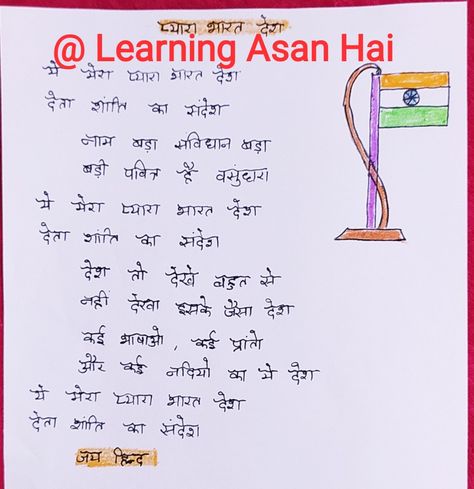 प्यारा भारत देश
@ Learning Asan Hai
ये मेरा प्यारा भारत देश
देता शांति का संदेश
नाम बड़ा सविधान बड़ा
बड़ी पवित्र है वसुंधरा
ये मेरा प्यारा भारत देश
देता शांति का संदेश
देश तो देखे बहुत से
नहीं देखा इसके जैसा देश
कई भाषाओ , कई प्रांतो
और कई नदियो का ये देश
ये मेरा प्यारा भारत देश
देता शांति का संदेश
जय हिन्द